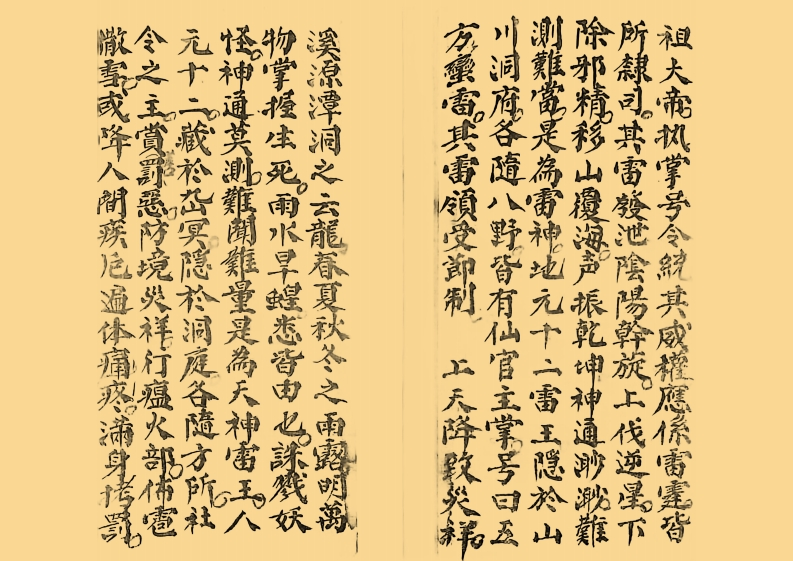 祖大帝执掌号令統其威權應係雷霆皆
所隸司其雷發泄陰陽幹旋上伐逆星下
除邪精移山覆海声振乾坤神通渺渺難
測難當是為雷神地元十二雷王隱於山
川洞府各隨八野皆有仙官主掌号曰五
方蠻雷其雷領受節制 上天降致災祥
溪源潭洞之云龍春夏秋冬之雨露明萬
物掌握生死雨水旱蝗悉皆由也誅戮妖
怪神通莫測難聞難量是為天神雷王人
元十二藏於岱冥隱於洞庭各隨方所社
令之主賞罰惡防境災祥行瘟火部佈雹
撒雪或降人間疾厄遍体痛疼滿身拷罰